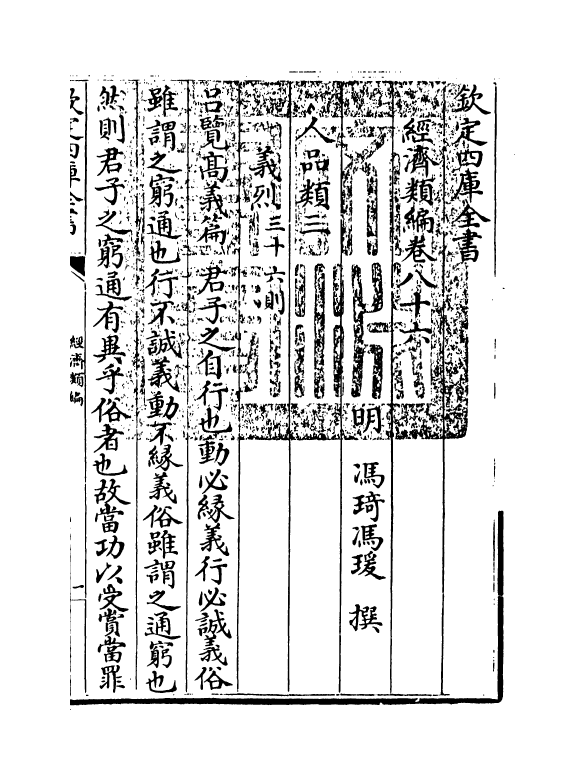 欽定四庫全書
經濟類編卷八十六
明　馮琦馮瑗　撰
人品類三
義烈三十六則
呂覽高義篇　君子之自行也動必緣義行必誠義俗
雖謂之窮通也行不誠義動不緣義俗雖謂之通窮也
然則君子之窮通有異乎俗者也故當功以受賞當罪
欽定四庫全書
經濟類編
一